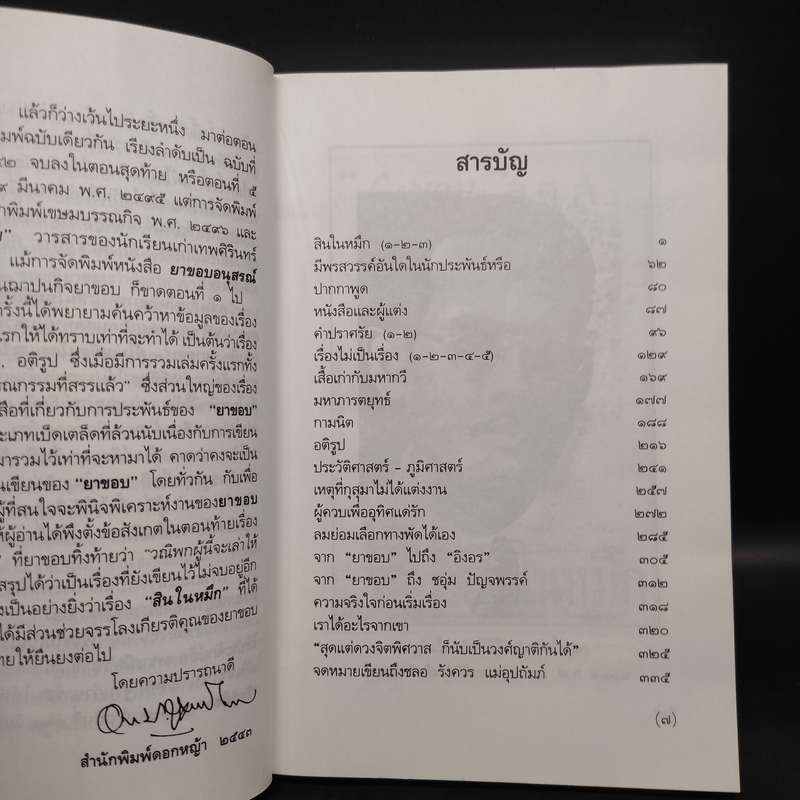 แล้วก็ว่างเว้นไประยะหนึ่ง มาต่อตอน
พิมพ์ฉบับเดียวกัน เรียงลำดับเป็น ฉบับที่
จบลงในตอนสุดท้าย หรือตอนที่ ๕
มีนาคม พ.ศ. ๒๔๙๕ แต่การจัดพิมพ์
พิมพ์เขษมบรรณกิจ พ.ศ. ๒๔๙๖ และ
วารสารของนักเรียนเก่าเทพศิรินทร์
แม้การจัดพิมพ์หนังสือ ยาขอบอนุสรณ์
ฌาปนกิจยาขอบ ก็ขาดตอนที่ ๑ ไป
ครั้งนี้ได้พยายามค้นคว้าหาข้อมูลของเรื่อง
แรกให้ได้ทราบเท่าที่จะทำได้ เป็นต้นว่าเรื่อง
อติรูป ซึ่งเมื่อมีการรวมเล่มครั้งแรกทั้ง
ณกรรมที่สรรแล้ว" ซึ่งส่วนใหญ่ของเรื่อง
สือที่เกี่ยวกับการประพันธ์ของ "ยาขอบ"
ะเภทเบ็ดเตล็ดที่ล้วนนับเนื่องกับการเขียน
มารวมไว้เท่าที่จะหามาได้ คาดว่าคงจะเป็น
นเขียนของ "ยาขอบ" โดยทั่วกัน กับเพื่อ
ผู้ที่สนใจจะพินิจพิเคราะห์งานของยาขอบ
ให้ผู้อ่านได้พึงตั้งข้อสังเกตในตอนท้ายเรื่อง
ที่ยาขอบทิ้งท้ายว่า "วณิพกผู้นี้จะเล่าให้
สรุปได้ว่าเป็นเรื่องที่ยังเขียนไว้ไม่จบอยู่อีก
งเป็นอย่างยิ่งว่าเรื่อง "สินในหมึก" ที่ได้
ได้มีส่วนช่วยจรรโลงเกียรติคุณของยาขอบ
ทยให้ยืนยงต่อไป
โดยความปรารถนาดี
สำนักพิมพ์ดอกหญ้า ๒๕๔๓
สารบัญ
สินในหมึก (๑-๒-๓) ๑
มีพรสวรรค์อันใดในนักประพันธ์หรือ ๖๒
ปากกาพูด ๘๐
หนังสือและผู้แต่ง ๘๗
คำปราศรัย (๑-๒) ๙๖
เรื่องไม่เป็นเรื่อง (๑-๒-๓-๔-๕) ๑๒๙
เสื้อเก่ากับมหากวี ๑๖๙
มหาภารตยุทธ์ ๑๗๗
กามนิต ๑๘๘
อติรูป ๒๑๖
ประวัติศาสตร์ - ภูมิศาสตร์ ๒๔๑
เหตุที่กุสุมาไม่ได้แต่งงาน ๒๕๗
ผู้ควบเพื่ออุทิศแด่รัก ๒๗๒
ลมย่อมเลือกทางพัดได้เอง ๒๘๕
จาก "ยาขอบ" ไปถึง "อิงอร" ๓๐๕
จาก "ยาขอบ" ถึง ชอุ่ม ปัญจพรรค์ ๓๑๒
ความจริงใจก่อนเริ่มเรื่อง ๓๑๘
เราได้อะไรจากเขา ๓๒๐
"สุดแต่ดวงจิตพิศวาส ก็นับเป็นวงศ์ญาติกันได้" ๓๒๕
จดหมายเขียนถึงชลอ รังควร แม่อุปถัมภ์ ๓๓๕
(๗)